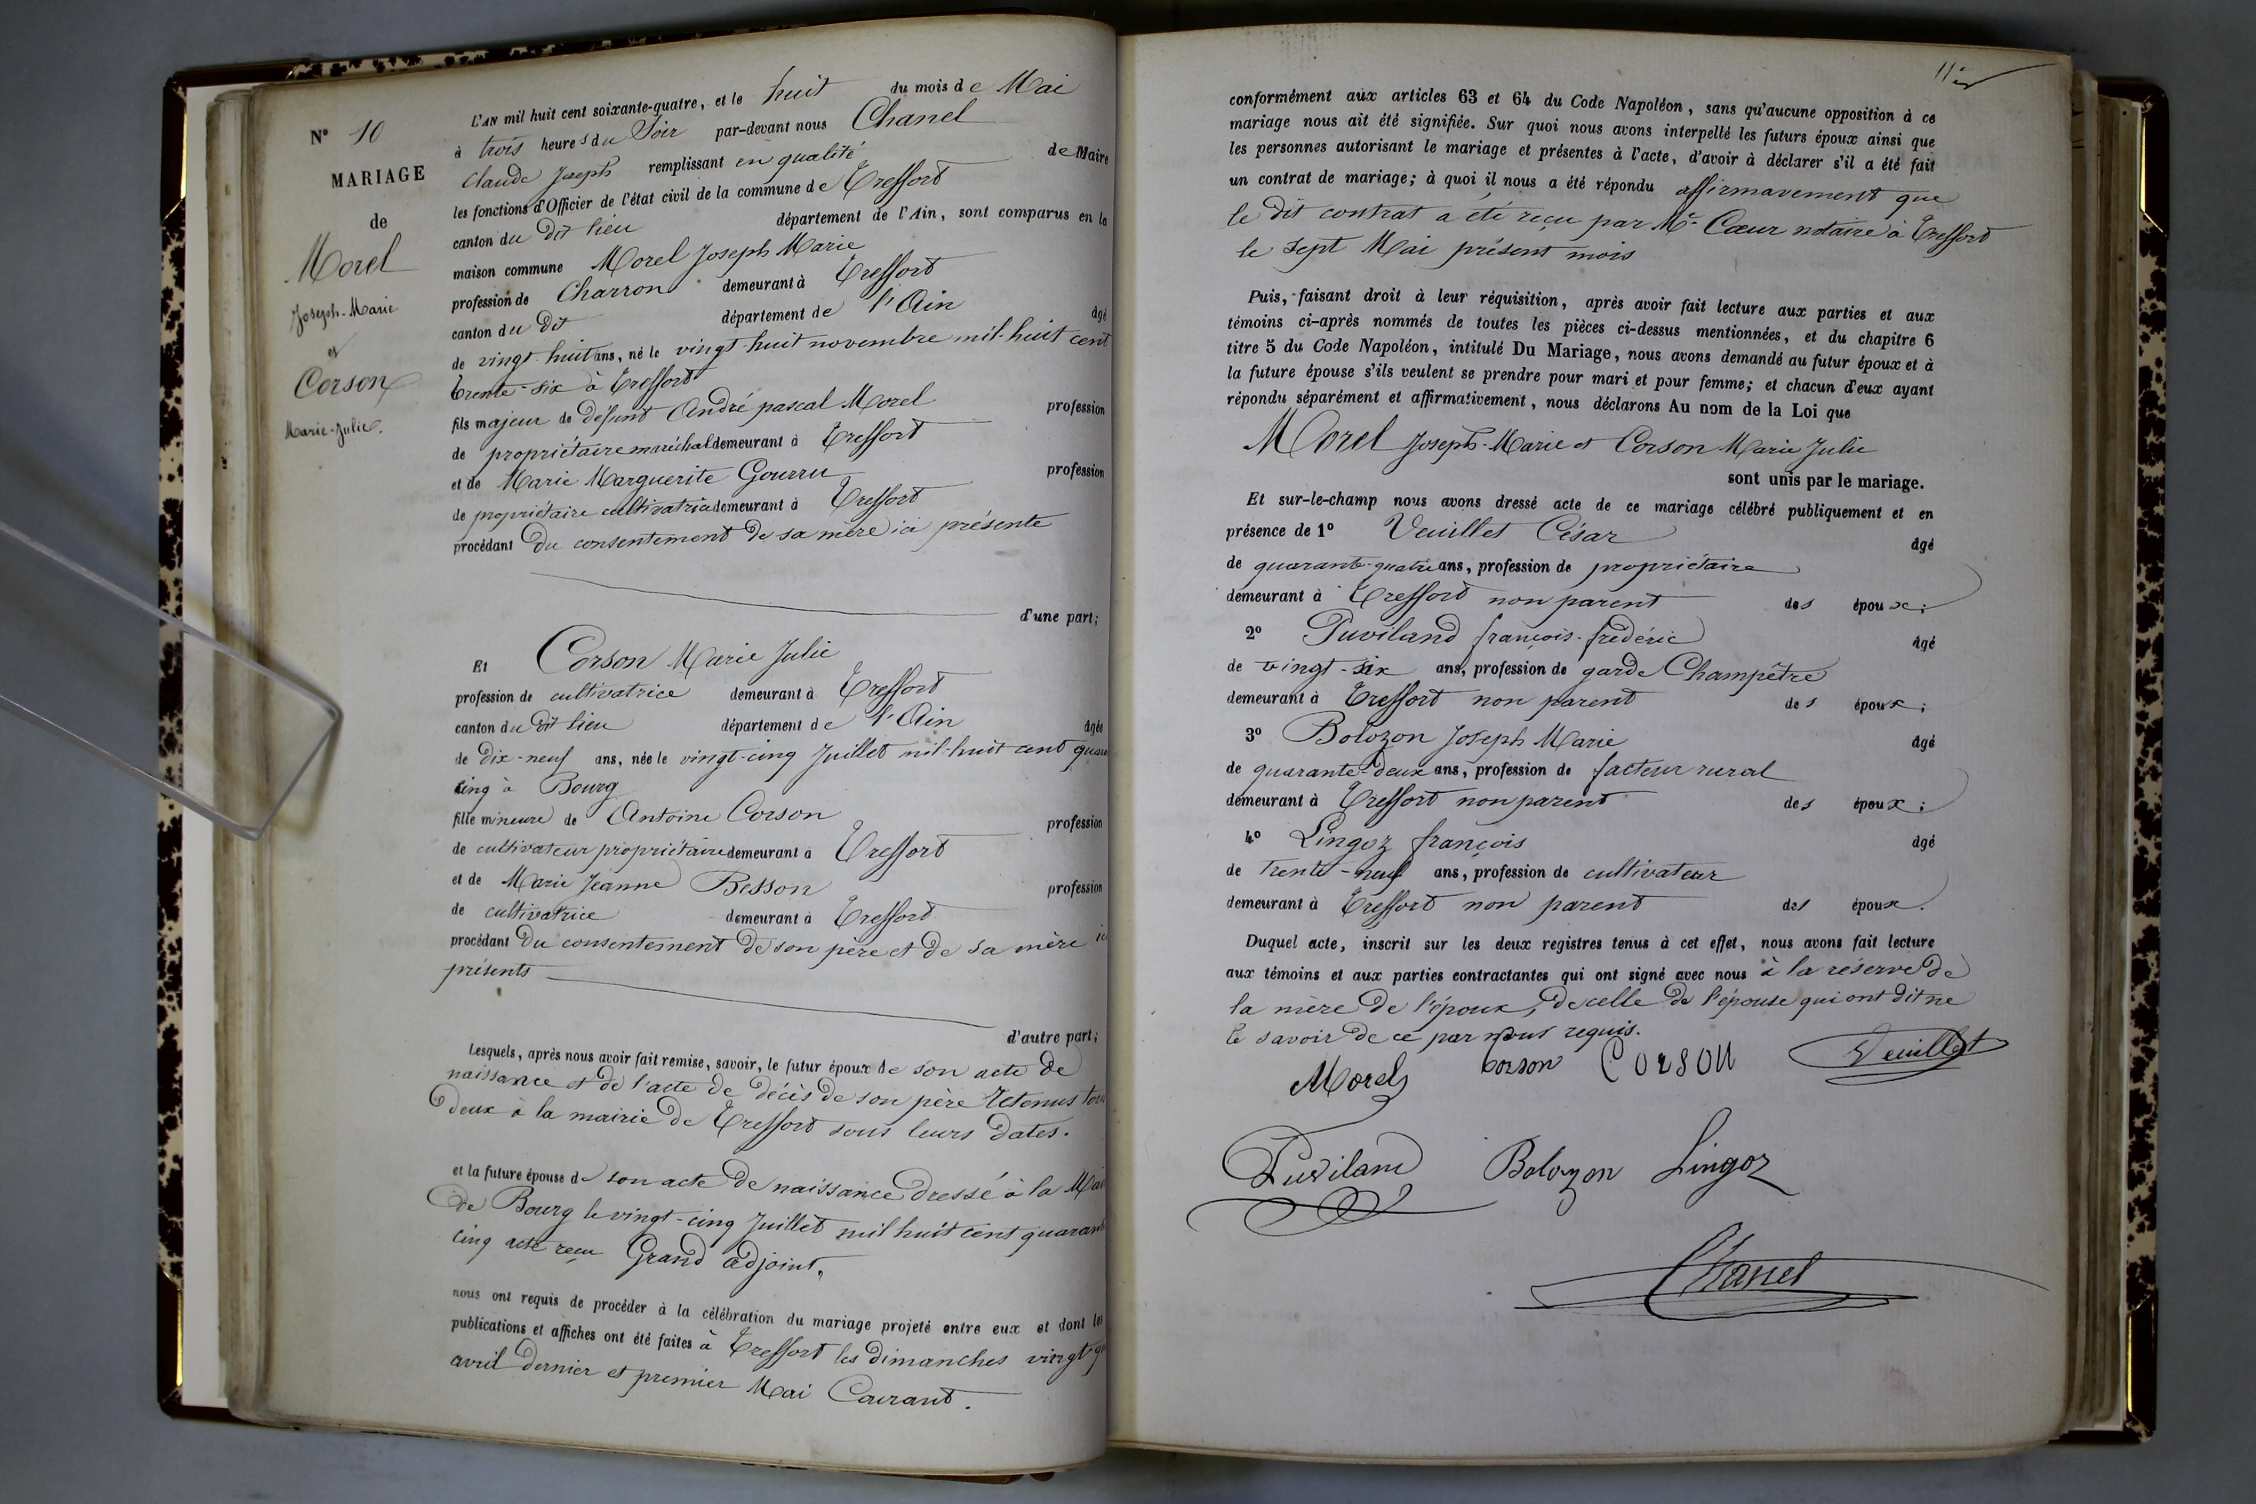 N° 10
MARIAGE
de
Morel
Joseph-Marie
et
Corson
Marie-Julie.
L'AN mil huit cent soixante-quatre, et le huit du mois de Mai
à trois heures du Soir par-devant nous Chanel
Claude Joseph remplissant en qualité de Maire
les fonctions d'Officier de l'état civil de la commune de Treffort
canton du dit lieu département de l'Ain, sont comparus en la
maison commune Morel Joseph Marie
profession de Charron demeurant à Treffort
canton du dit département de l'Ain âgé
de vingt-huit ans, né le vingt-huit novembre mil-huit cent
trente-six à Treffort
fils majeur de défunt André pascal Morel profession
de propriétaire maréchal demeurant à Treffort
et de Marie Marguerite Gourru profession
de propriétaire cultivatrice demeurant à Treffort
procédant du consentement de sa mère ici présente
d'une part;
Et Corson Marie Julie
profession de cultivatrice demeurant à Treffort
canton du dit lieu département de l'Ain âgée
de dix-neuf ans, née le vingt-cinq Juillet mil-huit cent quara
cinq à Bourg
fille mineure de Antoine Corson profession
de cultivateur propriétaire demeurant à Treffort
et de Marie Jeanne Besson profession
de cultivatrice demeurant à Treffort
procédant du consentement de son père et de sa mère ici
présents
d'autre part;
Lesquels, après nous avoir fait remise, savoir, le futur époux de son acte de
naissance et de l'acte de décès de son père retenus tous
deux à la mairie de Treffort sous leurs dates.
et la future épouse de son acte de naissance dressé à la Mai
de Bourg le vingt-cinq Juillet mil huit cent quarante
cinq acte reçu Grand adjoint,
nous ont requis de procéder à la célébration du mariage projeté entre eux et dont les
publications et affiches ont été faites à Treffort les dimanches vingt-qu
avril dernier et premier Mai Courant.
11
conformément aux articles 63 et 64 du Code Napoléon, sans qu'aucune opposition à ce
mariage nous ait été signifiée. Sur quoi nous avons interpellé les futurs époux ainsi que
les personnes autorisant le mariage et présentes à l'acte, d'avoir à déclarer s'il a été fait
un contrat de mariage; à quoi il nous a été répondu affirmavement que
le dit contrat a été reçu par Me Cœur notaire à Treffort
le sept Mai présent mois
Puis, faisant droit à leur réquisition, après avoir fait lecture aux parties et aux
témoins ci-après nommés de toutes les pièces ci-dessus mentionnées, et du chapitre 6
titre 5 du Code Napoléon, intitulé Du Mariage, nous avons demandé au futur époux et à
la future épouse s'ils veulent se prendre pour mari et pour femme; et chacun d'eux ayant
répondu séparément et affirmativement, nous déclarons Au nom de la Loi que
Morel Joseph-Marie et Corson Marie Julie
sont unis par le mariage.
Et sur-le-champ nous avons dressé acte de ce mariage célébré publiquement et en
présence de 1° Veuillet César âgé
de quarante-quatre ans, profession de propriétaire
demeurant à Treffort non parent des époux;
2° Puviland françois-frédéric âgé
de vingt-six ans, profession de garde Champêtre
demeurant à Treffort non parent des époux;
3° Bolozon Joseph Marie âgé
de quarante-deux ans, profession de facteur rural
demeurant à Treffort non parent des époux;
4° Lingoz françois âgé
de trente-neuf ans, profession de cultivateur
demeurant à Treffort non parent des époux.
Duquel acte, inscrit sur les deux registres tenus à cet effet, nous avons fait lecture
aux témoins et aux parties contractantes qui ont signé avec nous à la réserve de
la mère de l'époux, de celle de l'épouse qui ont dit ne
le savoir de ce par nous requis.
Morel corson Corson Veuillet
Puviland Bolozon Lingoz
Chanel